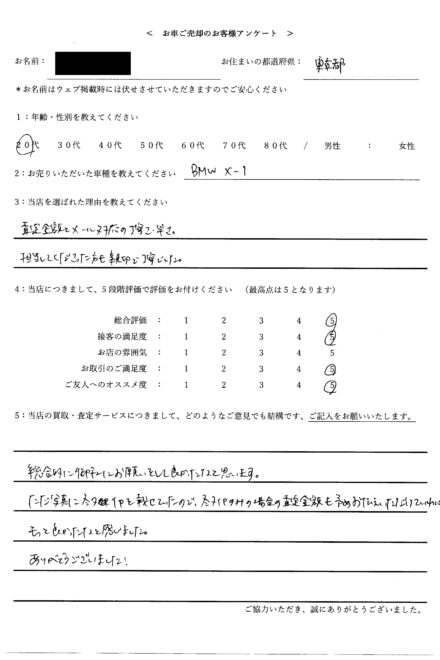 < お車ご売却のお客様アンケート >
お名前： お住まいの都道府県： 東京都
＊お名前はウェブ掲載時には伏せさせていただきますのでご安心ください
1：年齢・性別を教えてください
20代 30代 40代 50代 60代 70代 80代 / 男性 ： 女性
2：お売りいただいた車種を教えてください BMW X-1
3：当店を選ばれた理由を教えてください
査定金額とメール対応の丁寧さ、早さ。
担当してくださった方も親切で丁寧でした。
4：当店につきまして、5段階評価で評価をお付けください （最高点は5となります）
総合評価 ： 1 2 3 4 5
接客の満足度 ： 1 2 3 4 5
お店の雰囲気 ： 1 2 3 4 5
お取引のご満足度 ： 1 2 3 4 5
ご友人へのオススメ度 ： 1 2 3 4 5
5：当店の買取・査定サービスにつきまして、どのようなご意見でも結構です、ご記入をお願いいたします。
総合的に御社にお願いをして良かったなと思います。
ただ写真に を載せていたので、 のみの場合の査定金額も予めお伝えいただけていれば
もっと良かったなと感じました。
ありがとうございました！
ご協力いただき、誠にありがとうございました。